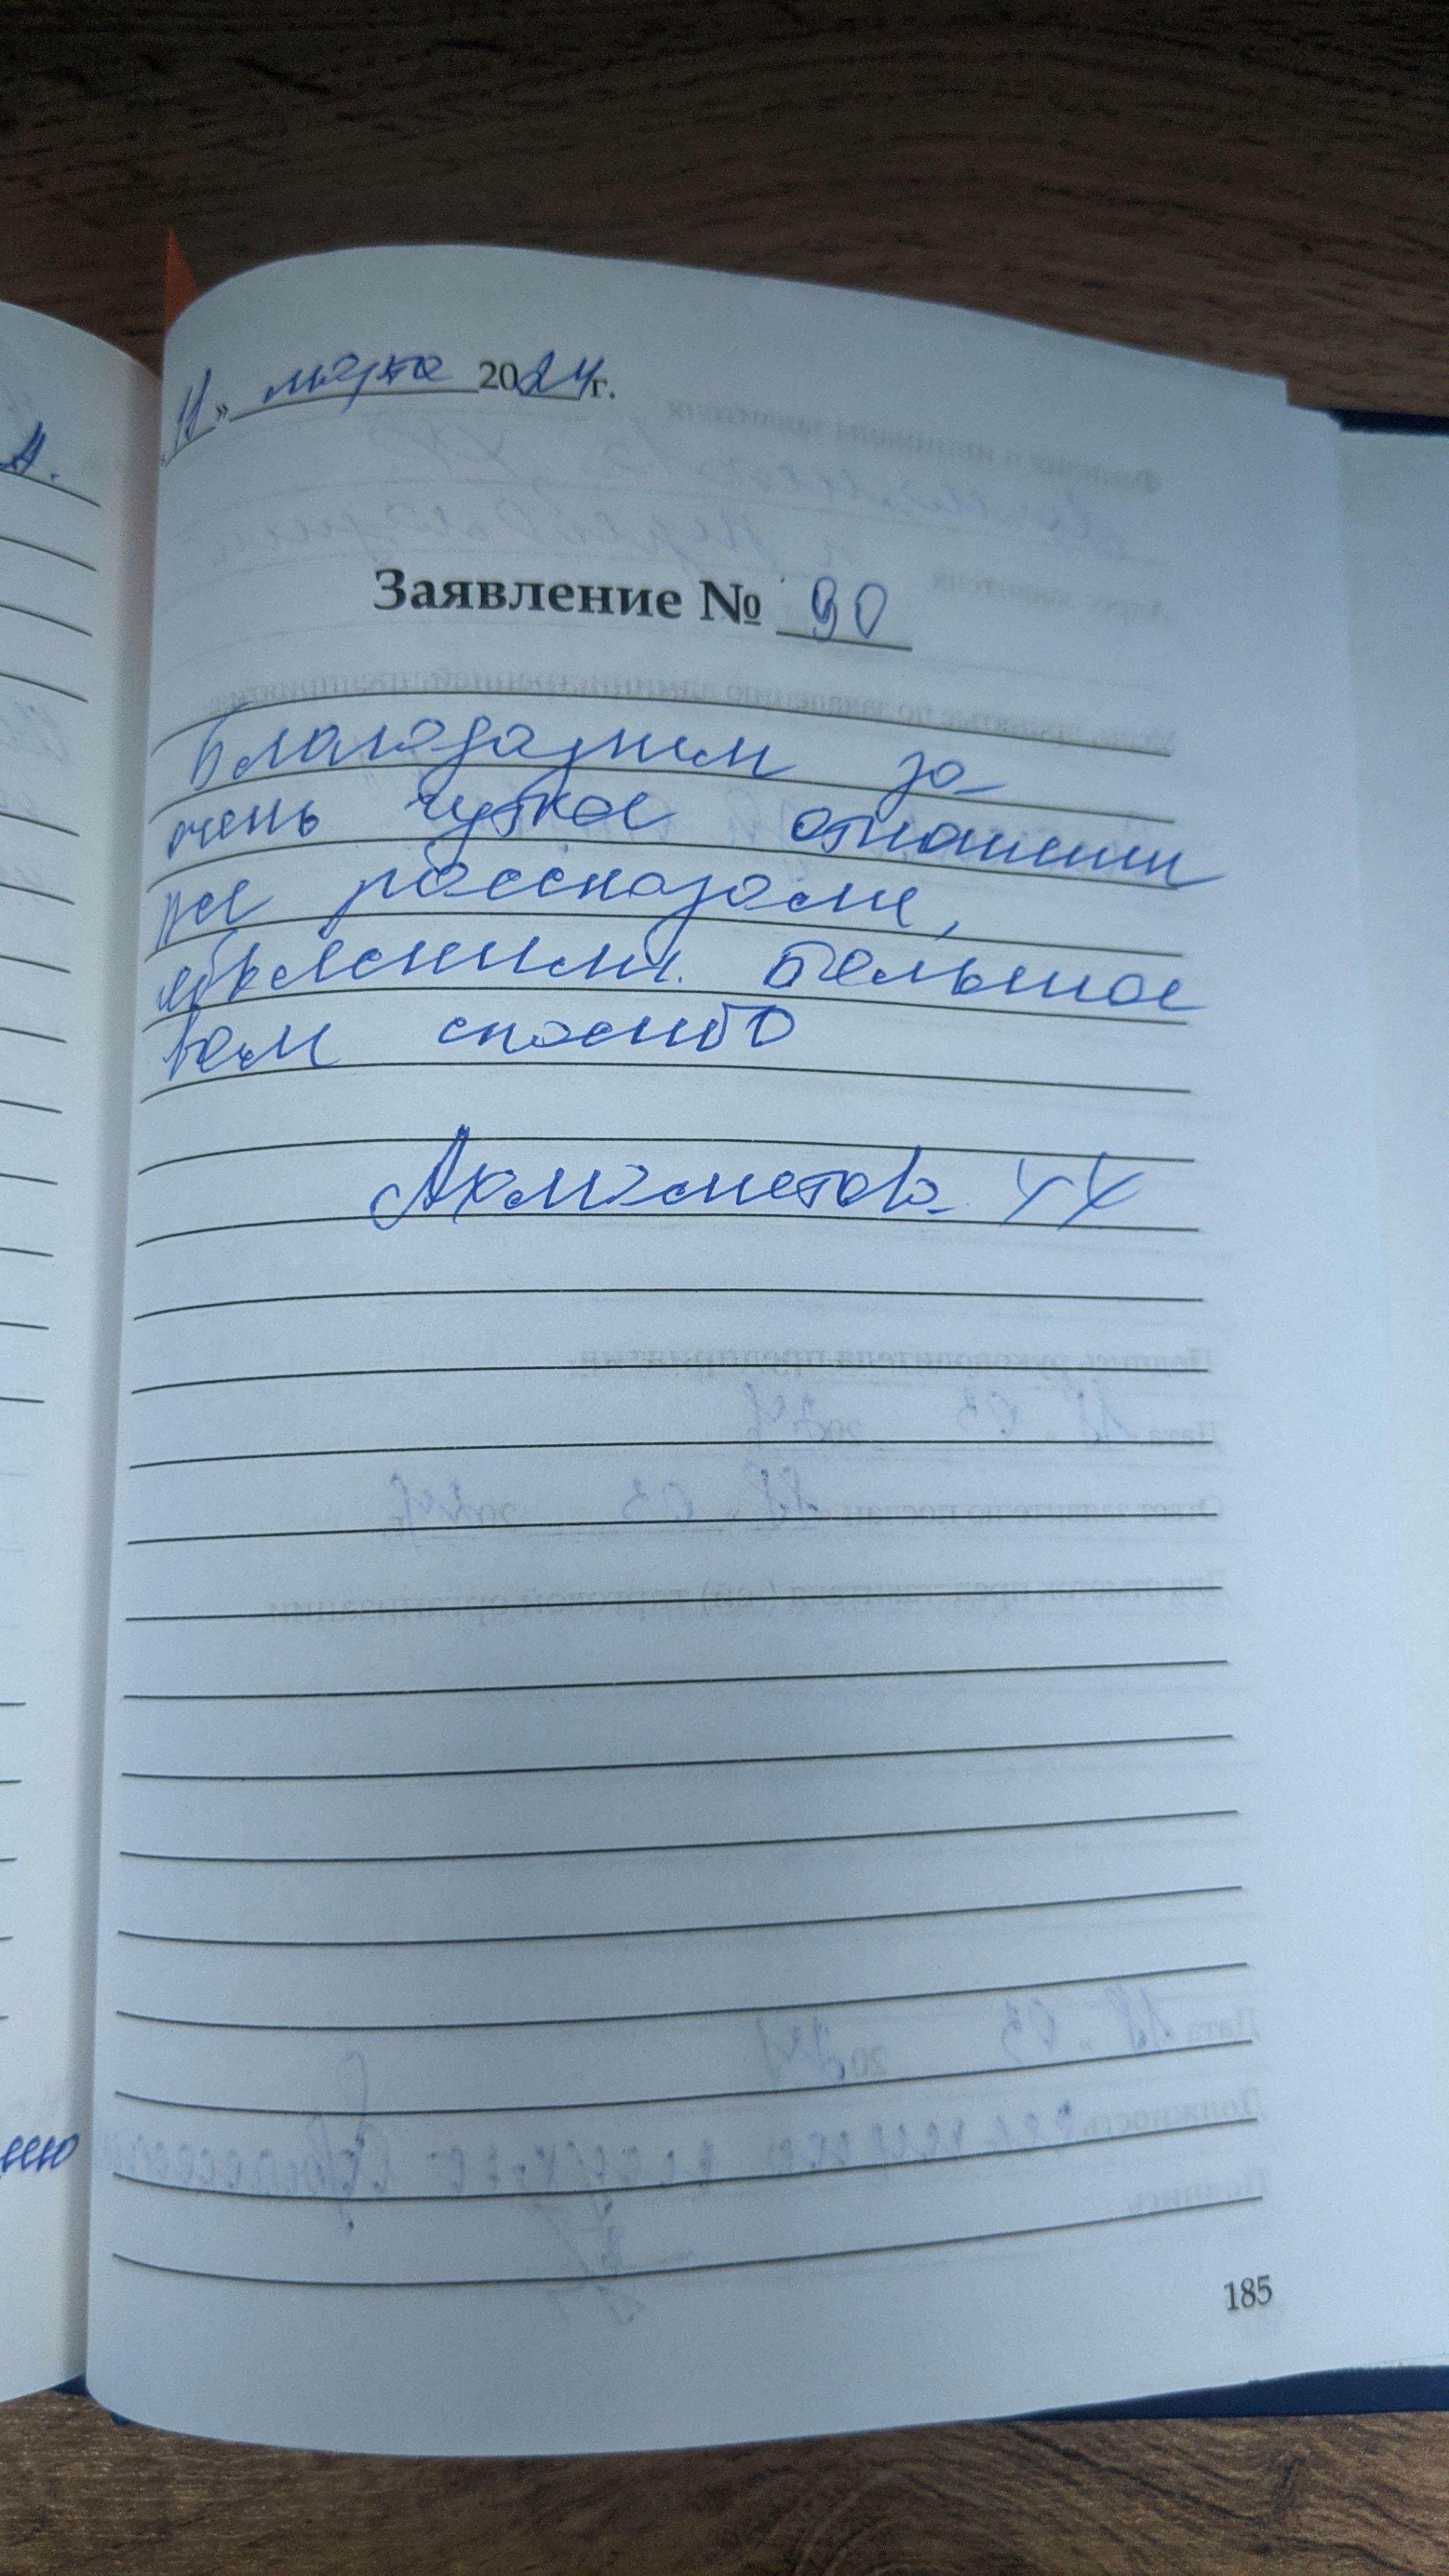 11» марта 2024г.
Заявление № 90
Благодарим за
очень чуткое отношении
все рассказали,
объяснили. Большое
вам спасибо
Ахмаметова
185